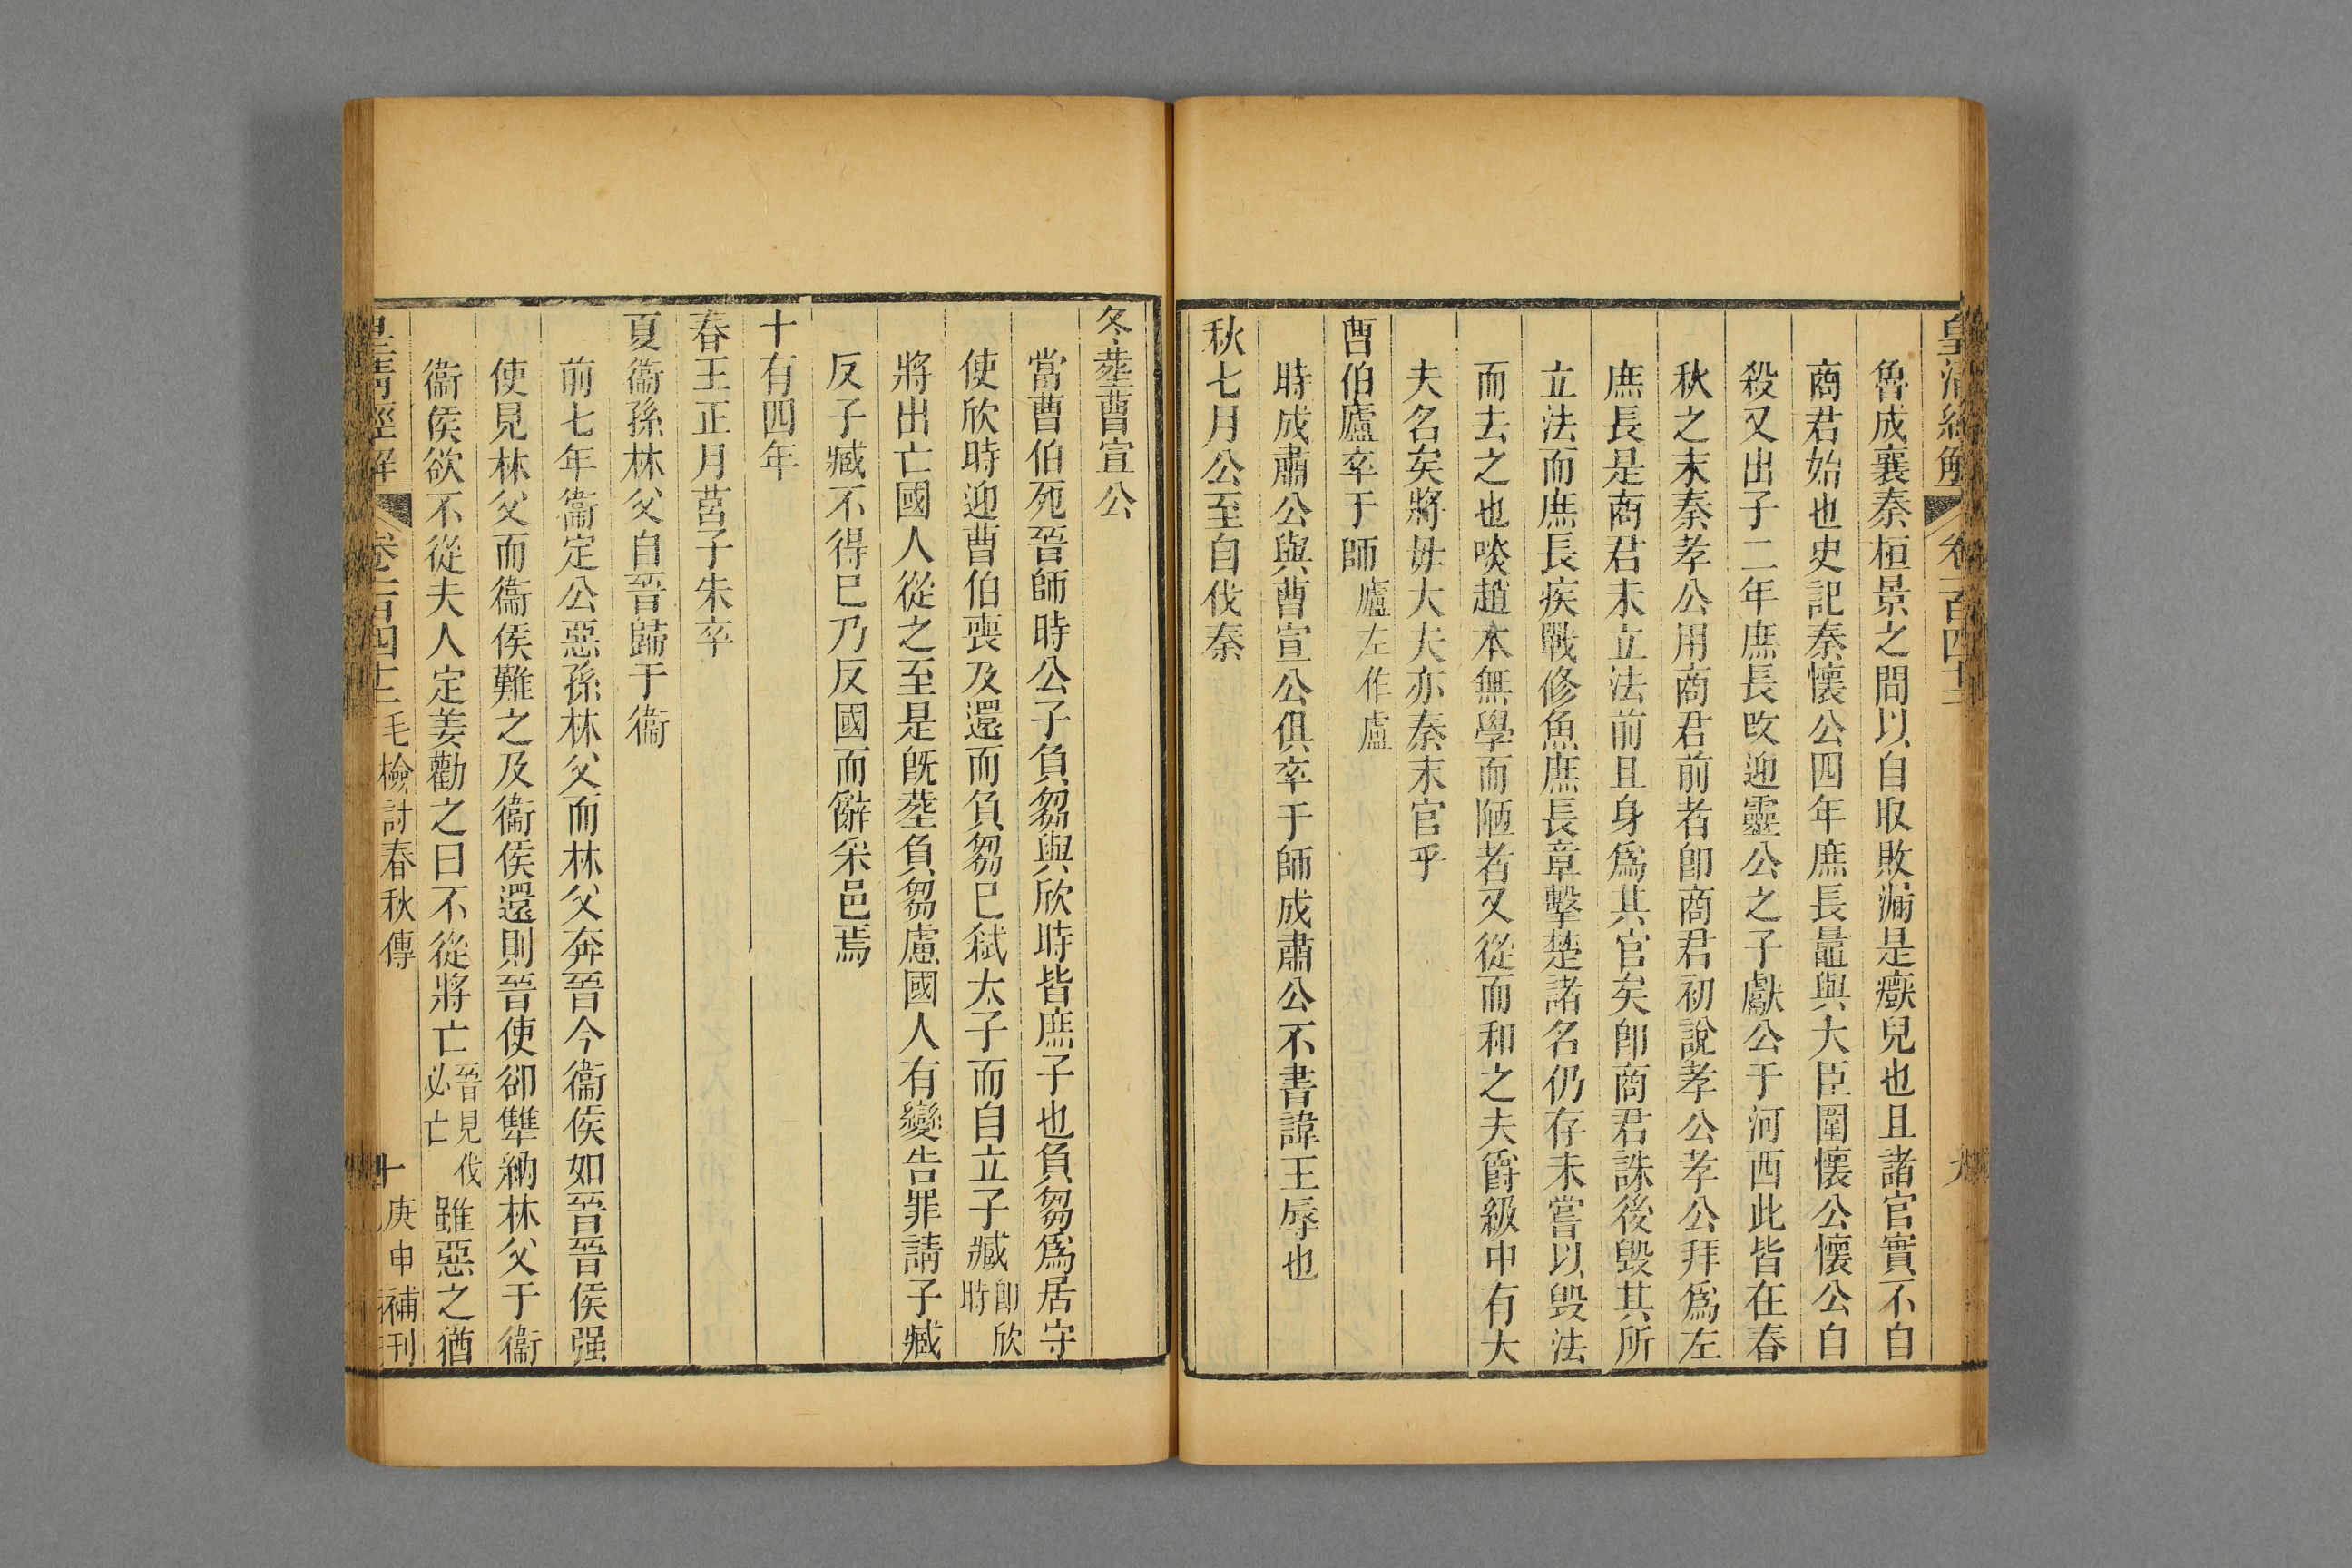 皇清經解 卷一百四十二
魯成襄秦桓景之間以自取敗漏是癡兒也且諸官實不自
商君始也史記秦懷公四年庶長鼂與大臣圍懷公懷公自
殺又出子二年庶長攺迎靈公之子獻公于河西此皆在春
秋之末秦孝公用商君前者卽商君初說孝公孝公拜爲左
庶長是商君未立法前且身爲其官矣卽商君誅後毁其所
立法而庶長疾戰修魚庶長章擊楚諸名仍存未嘗以毁法
而去之也啖趙本無學而陋者又從而和之夫爵級中有大
夫名矣將毋大夫亦秦末官乎
曹伯廬卒于師廬左作盧
時成肅公與曹宣公俱卒于師成肅公不書諱王辱也
秋七月公至自伐秦
冬葬曹宣公
當曹伯死晉師時公子負芻與欣時皆庶子也負芻爲居守
使欣時迎曹伯喪及還而負芻巳弑太子而自立子臧卽欣時
將出亡國人從之至是旣葬負芻慮國人有變告罪請子臧
反子臧不得巳乃反國而辭采邑焉
十有四年
春王正月莒子朱卒
夏衞孫林父自晉歸于衞
前七年衞定公惡孫林父而林父奔晉今衞侯如晉晉侯强
使見林父而衞侯難之及衞侯還則晉使郤犨納林父于衞
衞侯欲不從夫人定姜勸之曰不從將亡晉見伐必亡雖惡之猶
皇淸經解 卷一百四十二 毛檢討春秋傳 十 庚申補刊